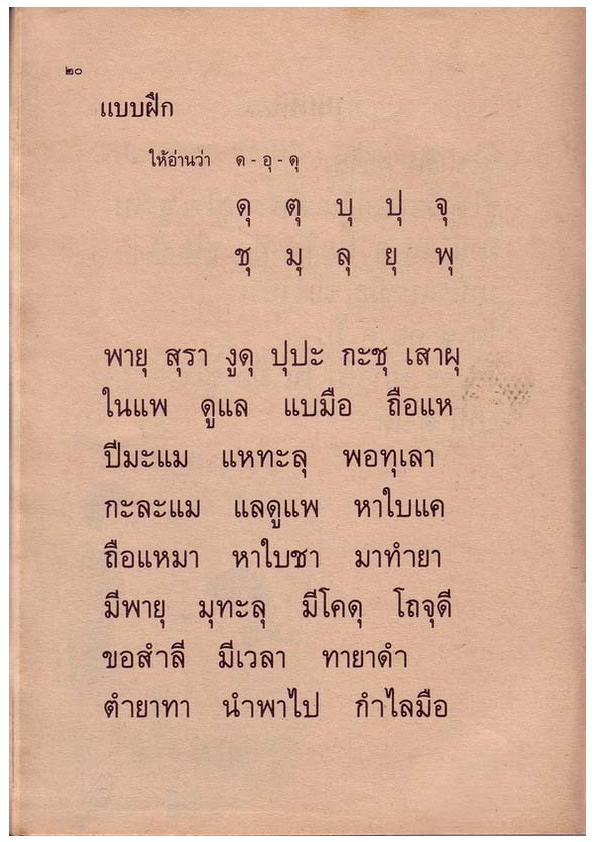 ๒๐
แบบฝึก
ให้อ่านว่า ด - อุ - ดุ
ดุ ตุ บุ ปุ จุ
ชุ มุ ลุ ยุ พุ
พายุ สุรา งูดุ ปุปะ กะชุ เสาผุ
ในแพ ดูแล แบมือ ถือแห
ปีมะแม แหทะลุ พอทุเลา
กะละแม แลดูแพ หาใบแค
ถือแหมา หาใบชา มาทำยา
มีพายุ มุทะลุ มีโคดุ โถจุดี
ขอสำลี มีเวลา ทายาดำ
ตำยาทา นำพาไป กำไลมือ